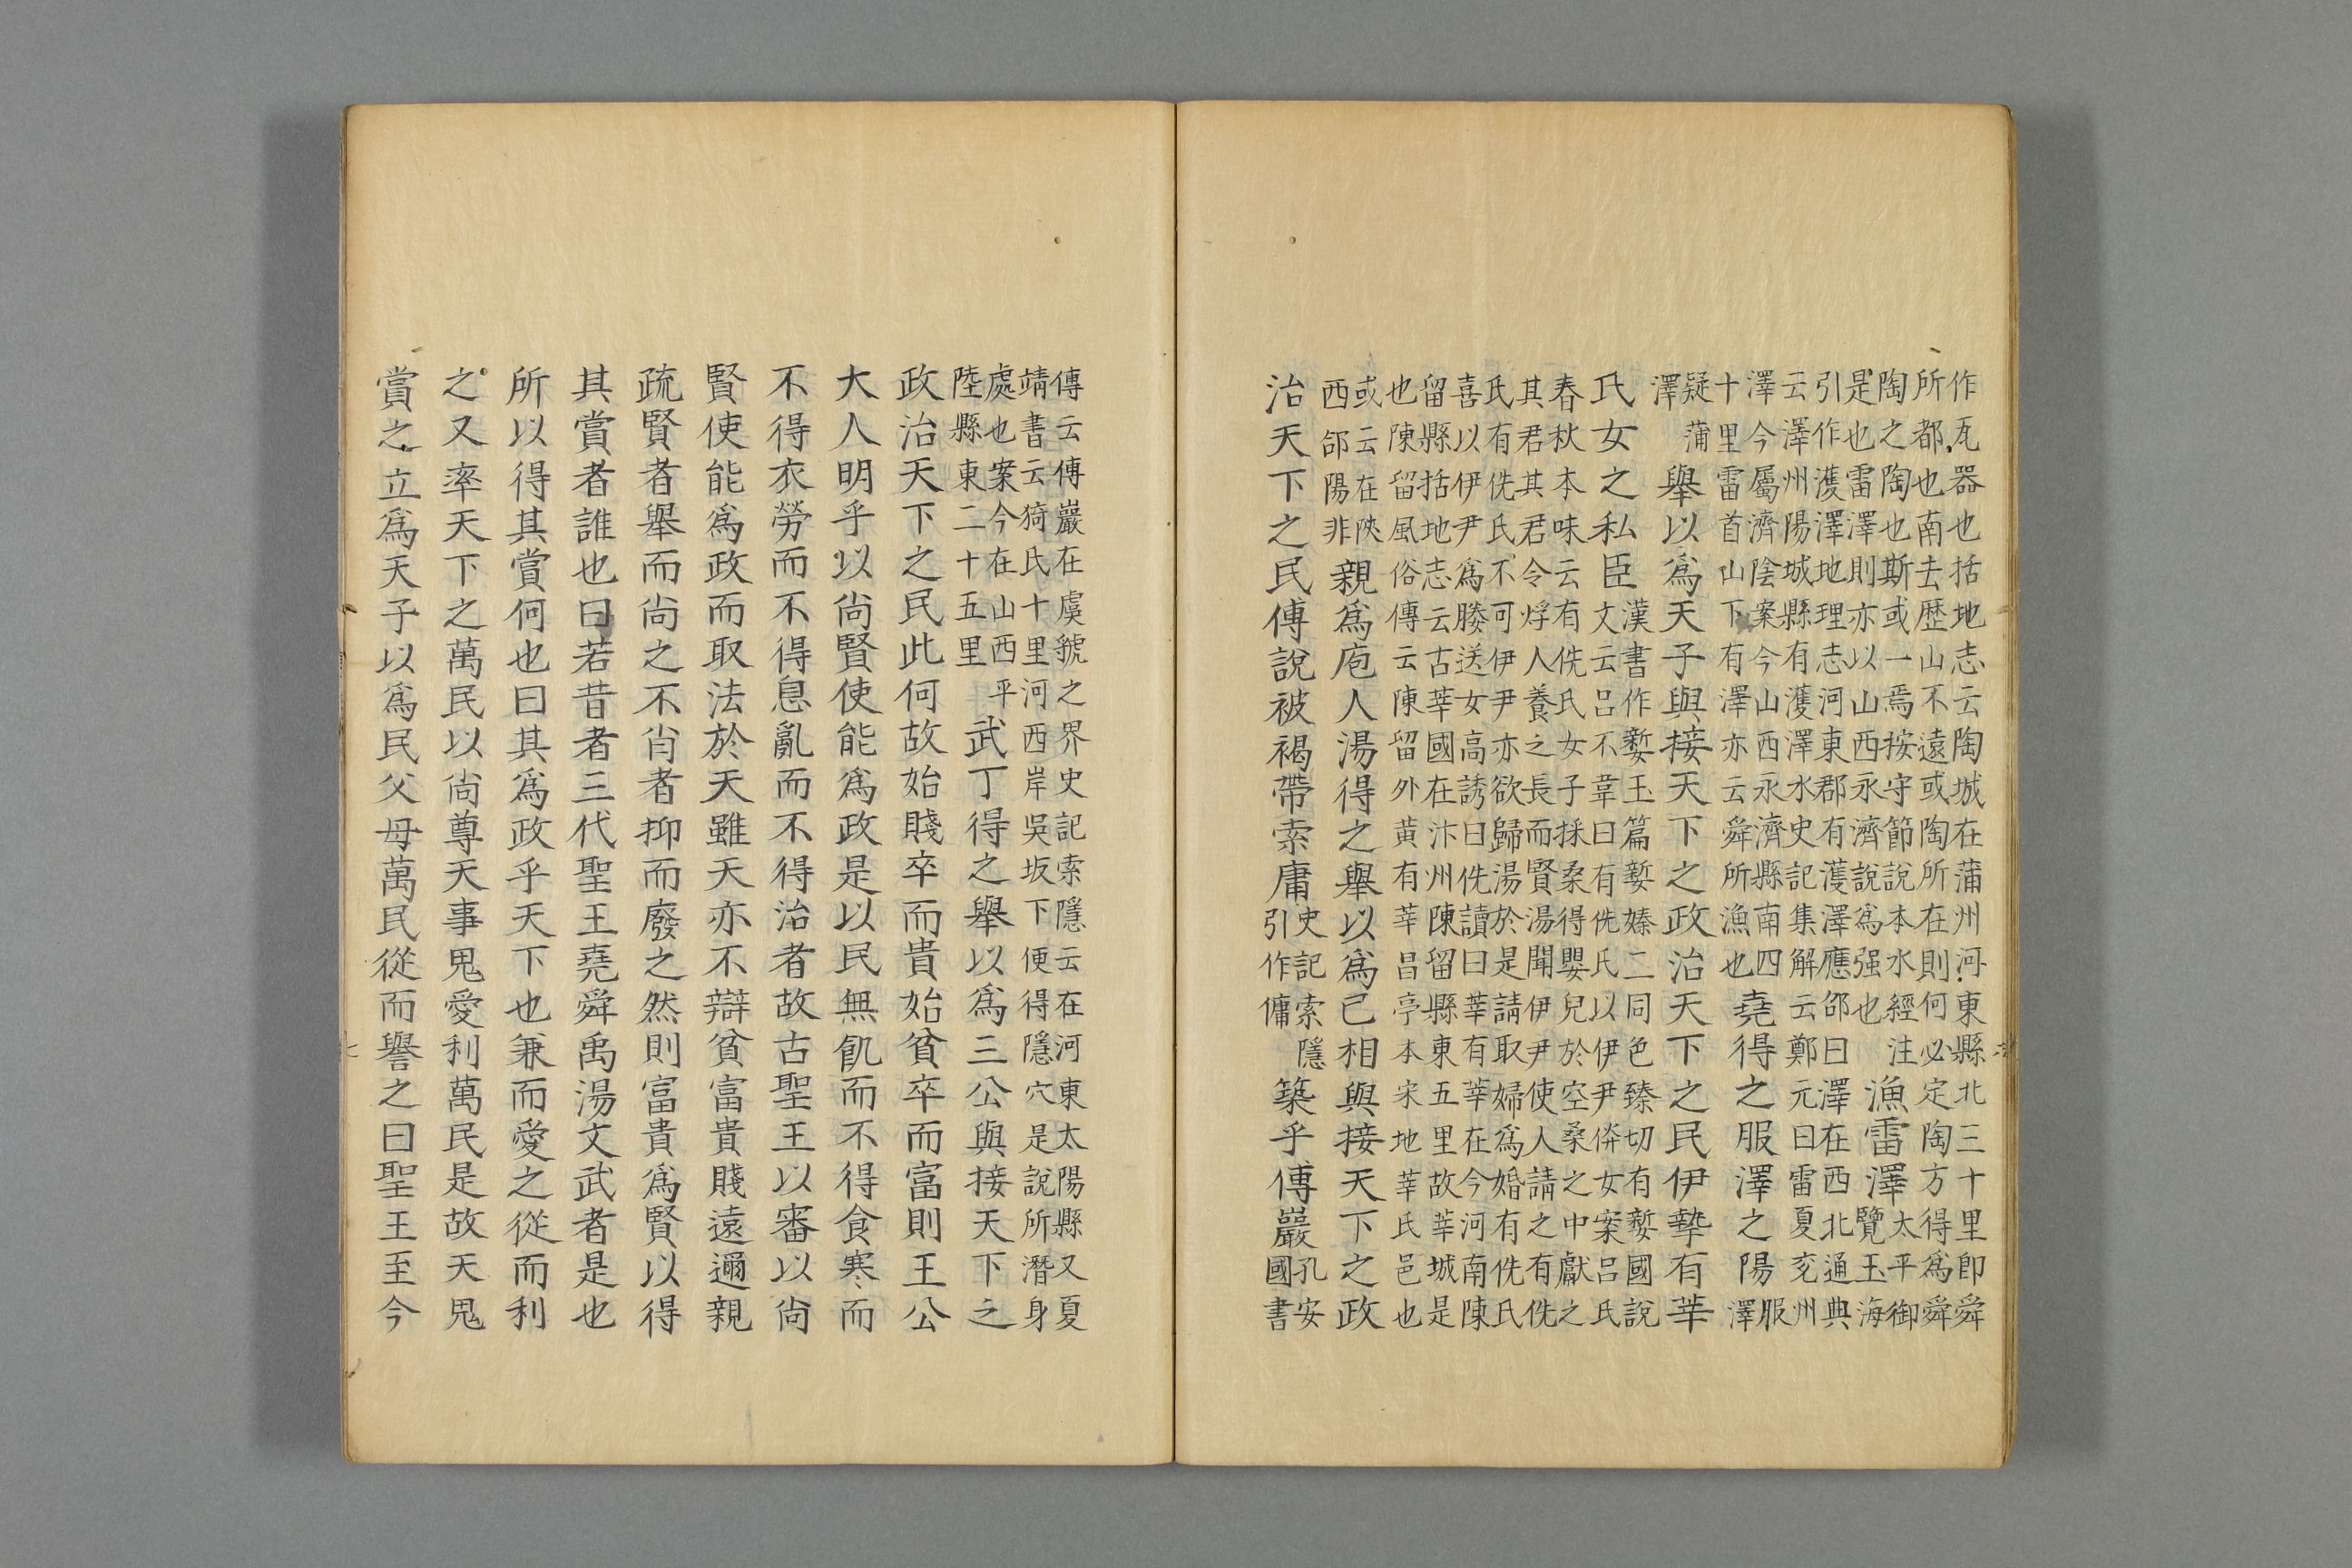 作瓦器也括地志云陶城在蒲州河東縣北三十里即舜
所都也南去歷山不遠或陶所在則何必定陶方得爲舜
陶之陶也斯或一焉按守節說本水經注
是也雷澤則亦以山西永濟說爲强也
漁雷澤
太平御
覽玉海
引作濩澤地理志河東郡有濩澤應邵曰澤在西北通典
云澤州陽城縣有濩澤水史記集解云鄭元曰雷夏兖州
澤今屬濟陰案今山西永濟縣南四
十里雷首山下有澤亦云舜所漁也
堯得之服澤之陽
服
澤
疑蒲
澤
舉以爲天子與接天下之政治天下之民伊摯有莘
氏女之私臣
漢書作㜪玉篇㜪嫀二同色臻切有㜪國說
文云呂不韋曰有侁氏以伊尹㑞女案呂氏
春秋本味云有侁氏女子採桑得嬰兒於空桑之中獻之
其君其君令烰人養之長而賢湯聞伊尹使人請之有侁
氏有侁氏不可伊尹亦欲歸湯於是請取婦爲婚有侁氏
喜以伊尹爲媵送女高誘曰侁讀曰莘有莘在今河南陳
留縣括地志云古莘國在汴州陳留縣東五里故莘城是
也陳留風俗傳云陳留外黃有莘昌亭本宋地莘氏邑也
或云在陝
西郃陽非
親爲庖人湯得之舉以爲己相與接天下之政
治天下之民傅說被褐帶索庸
史記索隱
引作傭
築乎傅巖
孔安
國書
傳云傅巖在虞虢之界史記索隱云在河東太陽縣又夏
靖書云猗氏十里河西岸吳坂下便得隱穴是說所潛身
處也案今在山西平
陸縣東二十五里
武丁得之舉以爲三公與接天下之
政治天下之民此何故始賤卒而貴始貧卒而富則王公
大人明乎以尚賢使能爲政是以民無飢而不得食寒而
不得衣勞而不得息亂而不得治者故古聖王以審以尚
賢使能爲政而取法於天雖天亦不辯貧富貴賤遠邇親
疏賢者舉而尚之不肖者抑而廢之然則富貴爲賢以得
其賞者誰也曰若昔者三代聖王堯舜禹湯文武者是也
所以得其賞何也曰其爲政乎天下也兼而愛之從而利
之又率天下之萬民以尚尊天事鬼愛利萬民是故天鬼
賞之立爲天子以爲民父母萬民從而譽之曰聖王至今